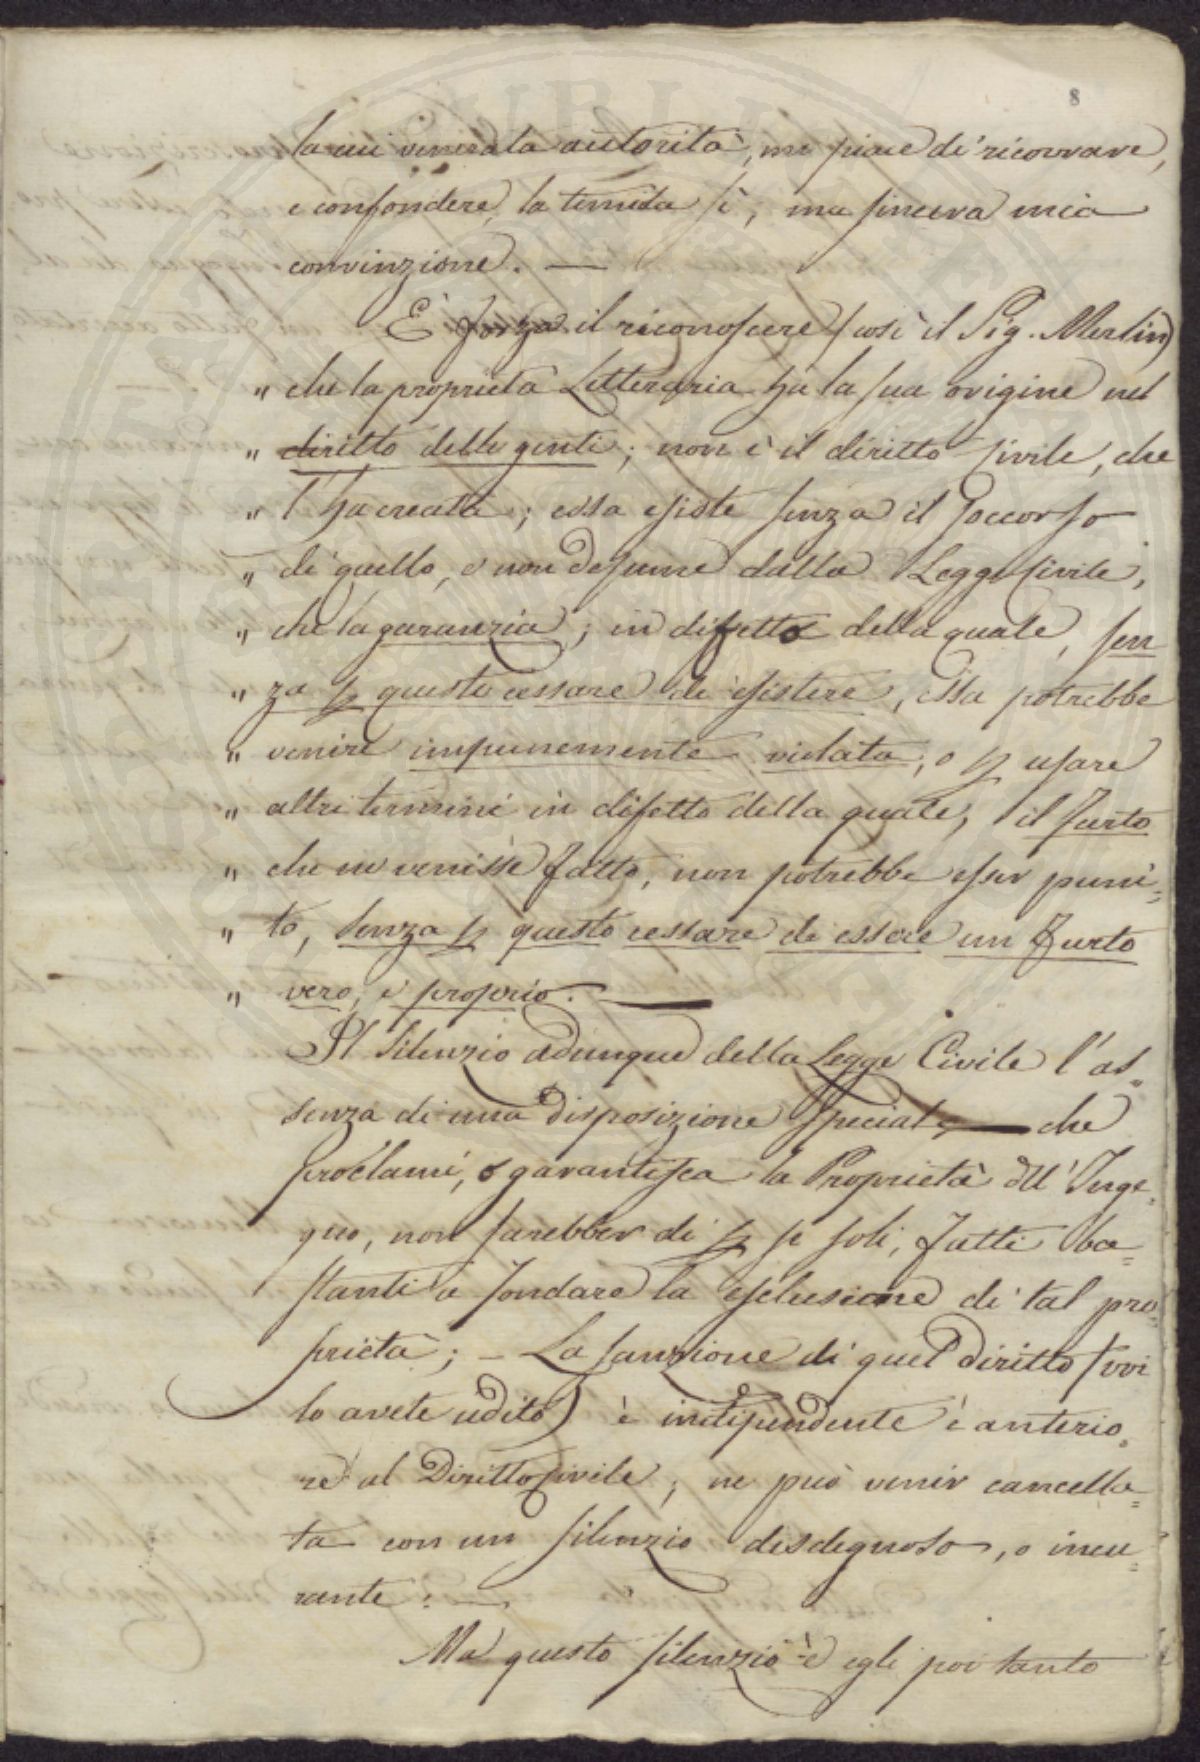 8
la cui venerata autorità, mi piace di ricovrare,
e confondere, la timida sì, ma sincera mia
convinzione. —
È forza il riconoscere (così il Sig. Merlin)
" che la proprietà Letteraria ha la sua origine nel
" diritto delle genti; non è il diritto Civile, che
" l'ha creata; essa esiste senza il soccorso
" di quello, e non desume dalla Legge Civile,
" che la garanzia; in difetto della quale, sen
" za p questo cessare di esistere, essa potrebbe
" venire impunemente violata, o p usare
" altri termini in difetto della quale, il furto
" che ne venisse fatto, non potrebbe esser puni=
" to, senza p questo cessare di essere un furto
" vero, e proprio. —
Il Silenzio adunque della Legge Civile l'as=
senza di una disposizione speciale — che
proclami, o garantisca la Proprietà dell'Inge=
gno, non sarebber di p se soli, fatti ba=
stanti a fondare la esclusione di tal pro=
prietà; — La sanzione di quel diritto (voi
lo avete udito) è indipendente è anterio=
re al Diritto Civile; ne può venir cancella=
ta con un silenzio disdegnoso, o incu=
rante: —
Ma questo silenzio è egli poi tanto